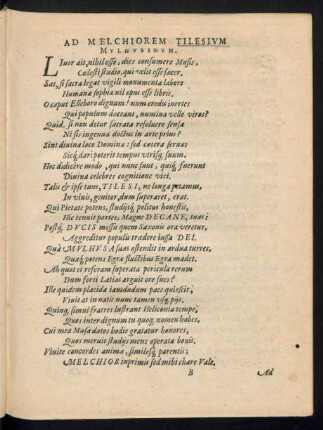 AD MELCHIOREM TILESIVM
MVLHVSINVM.
LIuor ait, nihil esse, dies consumere Musis,
Cœlesti studio, qui velit esse sacer.
Sat, si sacra legat vigili monumenta labore
Humana sophia nil opus esse libris.
O caput Elleboro dignum! num credis inertes
Qui populum doceant, numina velle viros?
Quid, si non detur sacrata resoluere sensa
Ni sic ingenua doctus in arte prius?
Sint diuina loco Domina: sed cætera seruæ:
Sicq́; dari poterit tempus vtrisq́; suum.
Hoc didicere modo, qui nunc sunt, quiq́; fuerunt
Diuina celebres cognitione vici.
Talis & ipse tuus, TILESI, ne longa petamus,
In viuis, genitor, dum superaret, erat.
Qui Pietate potens, studijsq́; politus honestis,
Hic tenuit partes, Magne DECANE, tuas;
Postq́; DVCIS missu quem Saxonis ora veretur,
Aggreditur populis tradere iussa DEI.
Quà MVLHVSA suas ostendit in ordine turres,
Quaq́; potens Egra fluctibus Egra madet.
Ab quot ei referam superata pericula rerum
Dum forti Latias arguit ore suces?
Ille quidem placida iamdudum pace quiescit;
Viuit at in natis nunc tamen vsq́; pijs.
Quinq́; simul fratres lustrant Heliconia tempe,
Quos inter dignum tu quoq́; nomen habes,
Cui mea Musa datos hodie gratatur honores,
Quos meruit studijs mens operata bonis.
Viuite concordes animæ, similesq́; parentis;
MELCHIOR inprimis sed mihi chare Vale.
B Ad